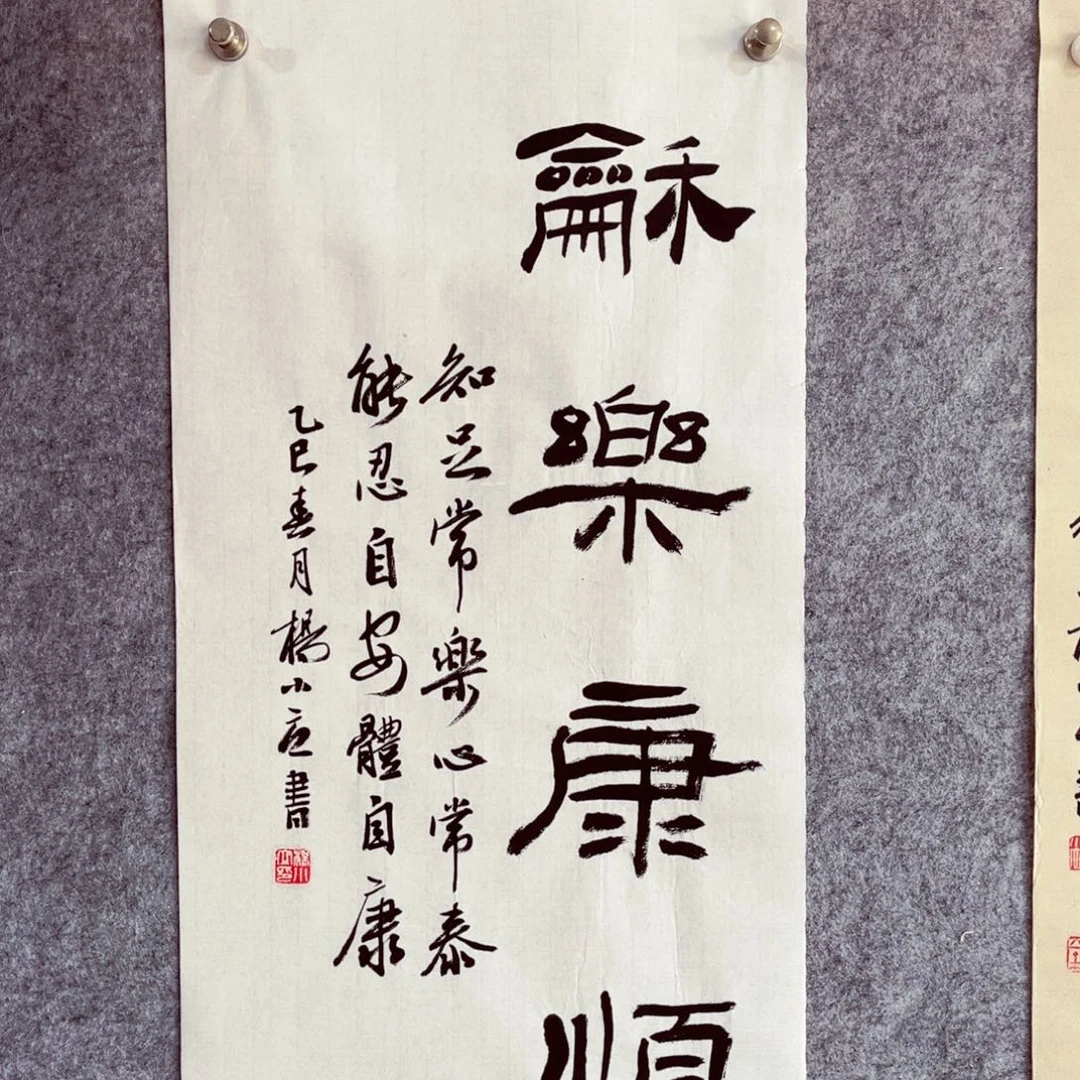 龢樂康順
知足常樂心常泰
能忍自安體自康
乙巳春月楊小書